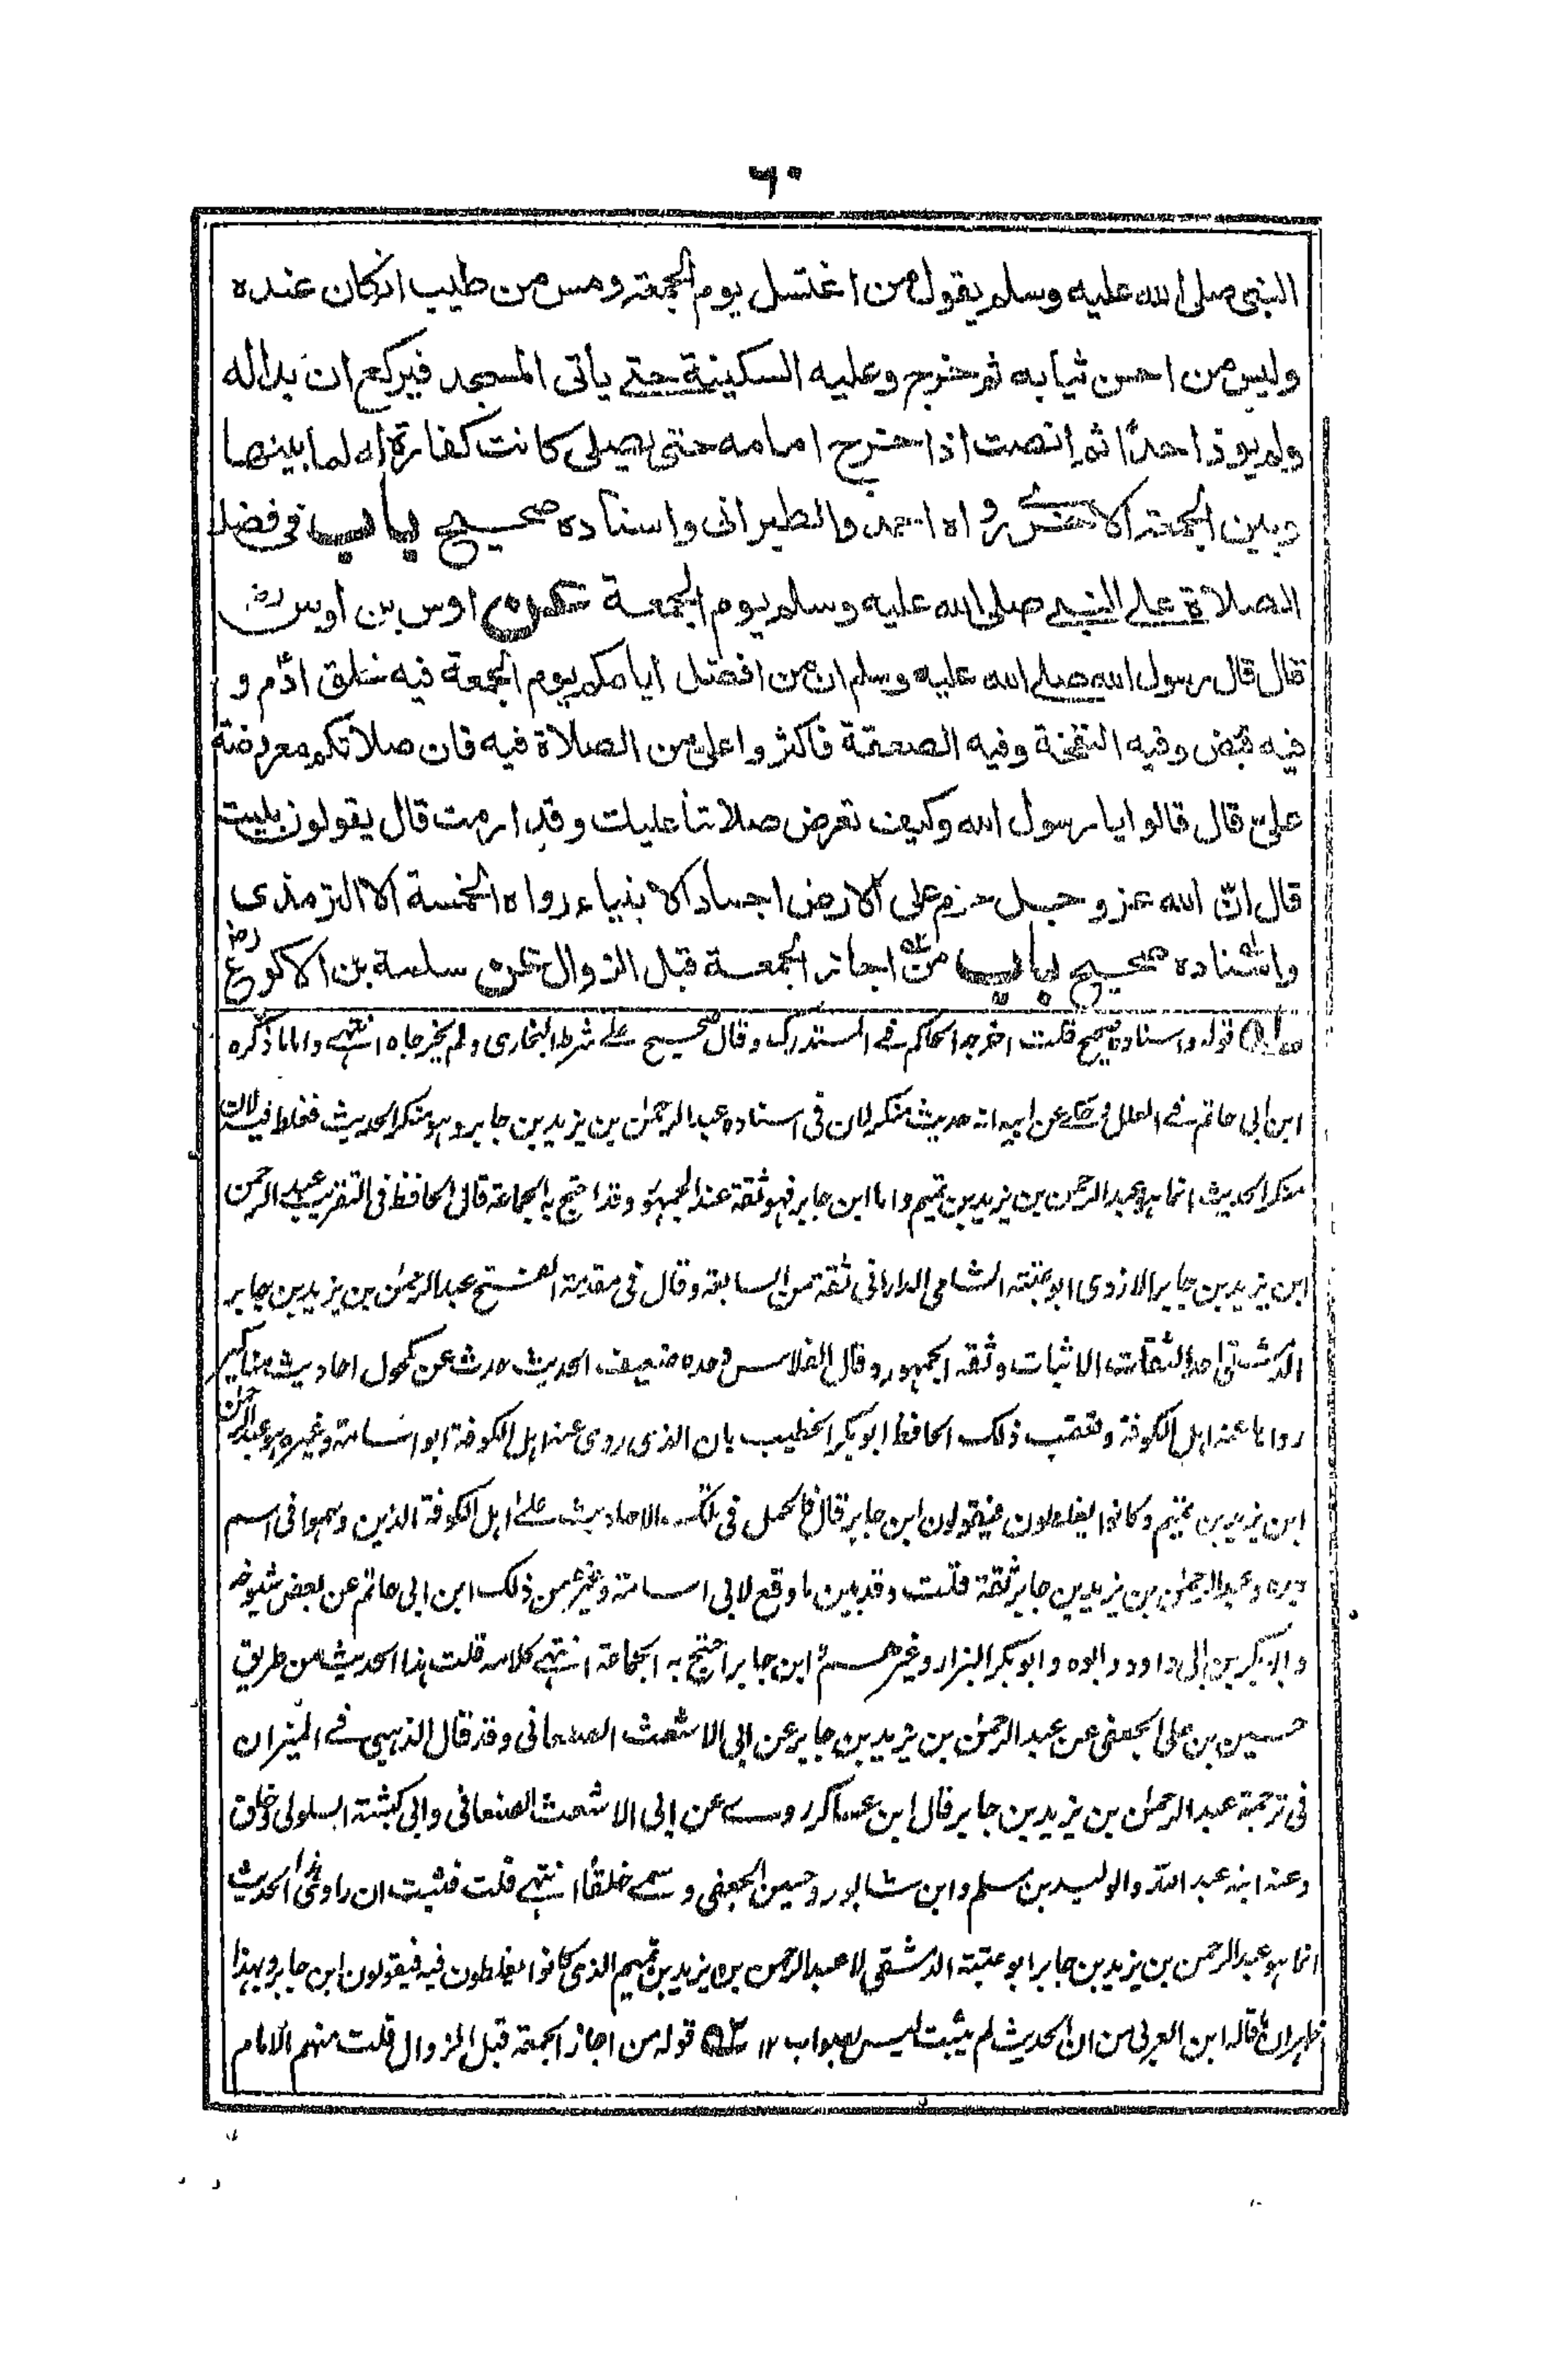 ٦٠
النبی صلی الله علیه وسلم یقول من اغتسل یوم الجمعة ومس من طیب ان کان عنده
ولبس من احسن ثیابه ثم خرج وعلیه السکینة حتی یأتی المسجد فیرکع ان بدا له
ولم یوذ احدًا ثم انصت اذا خرج امامه حتی یصلی کانت کفارة له لما بینها
وبین الجمعة الاخری رواه احمد والطبرانی واسناده صحیح باب فی فضل
الصلاة علی النبی صلی الله علیه وسلم یوم الجمعة عن اوس بن أوس رض
قال قال رسول الله صلی الله علیه وسلم ان من افضل ایامکم یوم الجمعة فیه خلق اٰدم و
فیه قبض وفیه النفخة وفیه الصعقة فاکثروا علی من الصلاة فیه فان صلاتکم معروضة
علیّ قال قالوا یا رسول الله وکیف تعرض صلاتنا علیك وقد ارمت قال یقولون بلیت
قال انّ الله عز وجل حرم علی الارض اجساد الانبیاء رواه الخمسة الا الترمذی
واسناده صحیح باب من اجاز الجمعة قبل الزوال عن سلمة بن الاکوع رض
١ قوله واسناده صحیح قلت اخرجه الحاکم فی المستدرک وقال صحیح علی شرط البخاری ولم یخرجاه انتهی واما ما ذکره
ابن ابی حاتم فی العلل وحکی عن ابیه انه حدیث منکر لان فی اسناده عبد الرحمٰن بن یزید بن جابر وهو منکر الحدیث فغلط فیه لان
منکر الحدیث انما هو عبد الرحمٰن بن یزید بن تمیم واما ابن جابر فهو ثقة عند الجمهور وقد احتج به الجماعة قال الحافظ فی التقریب عبد الرحمن
ابن یزید بن جابر الازدی ابو عتبة الشامی الدارانی ثقة من السابعة وقال فی مقدمة الفتح عبد الرحمٰن بن یزید بن جابر
الدمشقی احد الثقات الاثبات وثقه الجمهور وقال الفلاس وحده ضعیف الحدیث حدث عن مکحول احادیث مناکیر
رواها عنه اهل الکوفة وتعقب ذلک الحافظ ابو بکر الخطیب بان الذی روی عنه اهل الکوفة ابو اسامة وغیره هو عبد الرحمٰن
ابن یزید بن تمیم وکانوا یغلطون فیقولون ابن جابر قال فالحمل فی تلک الاحادیث علی اهل الکوفة الذین وهموا فی اسم
جده وعبد الرحمٰن بن یزید بن جابر ثقة قلت وقد بین ما وقع لابی اسامة وغیره من ذلک ابن ابی حاتم عن بعض شیوخه
وابو بکر بن ابی داود وابوه وابو بکر البزار وغیرهم وابن جابر احتج به الجماعة انتهی کلامه قلت هذا الحدیث من طریق
حسین بن علی الجعفی عن عبد الرحمٰن بن یزید بن جابر عن ابی الاشعث الصنعانی وقد قال الذهبی فی المیزان
فی ترجمة عبد الرحمٰن بن یزید بن جابر قال ابن عساکر روی عن ابی الاشعث الصنعانی وابی کبشة السلولی وخلق
وعنه ابنه عبد الله والولید بن مسلم وابن شابور وحسین الجعفی وسمی خلقًا انتهی قلت فثبت ان راوی هذا الحدیث
انما هو عبد الرحمن بن یزید بن جابر ابو عتبة الدمشقی لا عبد الرحمن بن یزید بن تمیم الذی کانوا یغلطون فیه فیقولون ابن جابر وبهذا
ظهر ان ما قاله ابن العربی من ان الحدیث لم یثبت لیس بصواب ١٢ ٢ قوله من اجاز الجمعة قبل الزوال قلت منهم الامام